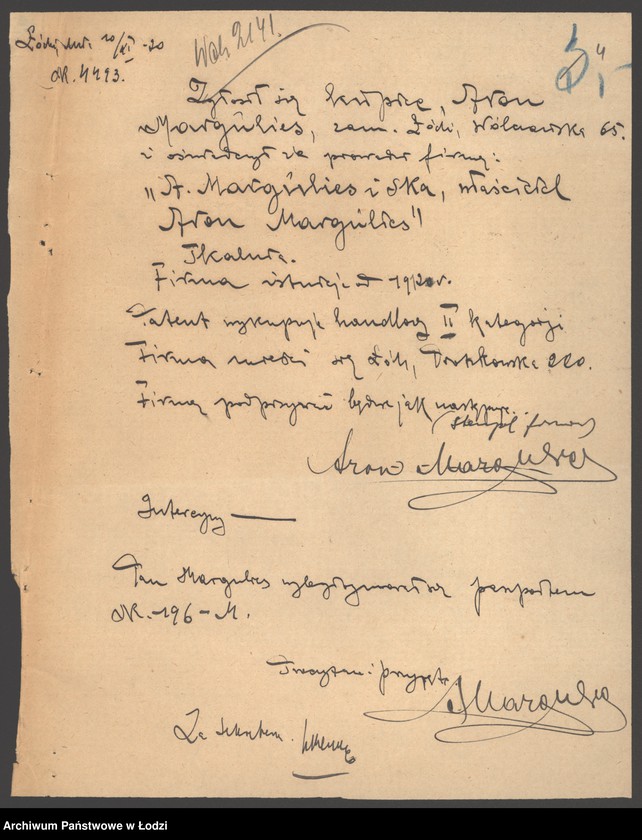 Łódź, dnia 10/XI -20
Nr. 4493.
Woh 2141.
4
Zgłosił się kupiec, Aron
Margulies, zam. Łódź, Wólczańska 65.
i oświadczył że prowadzi firmę:
"A. Margulies i Ska, właściciel
Aron Margulies"
Tkalnia.
Firma istnieje od 1920 r.
Patent wykupuje handlowy II kategorji
Firma mieści się Łódź, Piotrkowska 220.
Firmę podpisywać będzie jak następuje..
(stempel firmowy)
Aron Margulies
Intercyzy —
Pan Margulies wylegitymował się paszportem
Nr. -196-M.
Przeczytano i przyjęto
AMargulies
Za Sekretarza.
Archiwum Państwowe w Łodzi